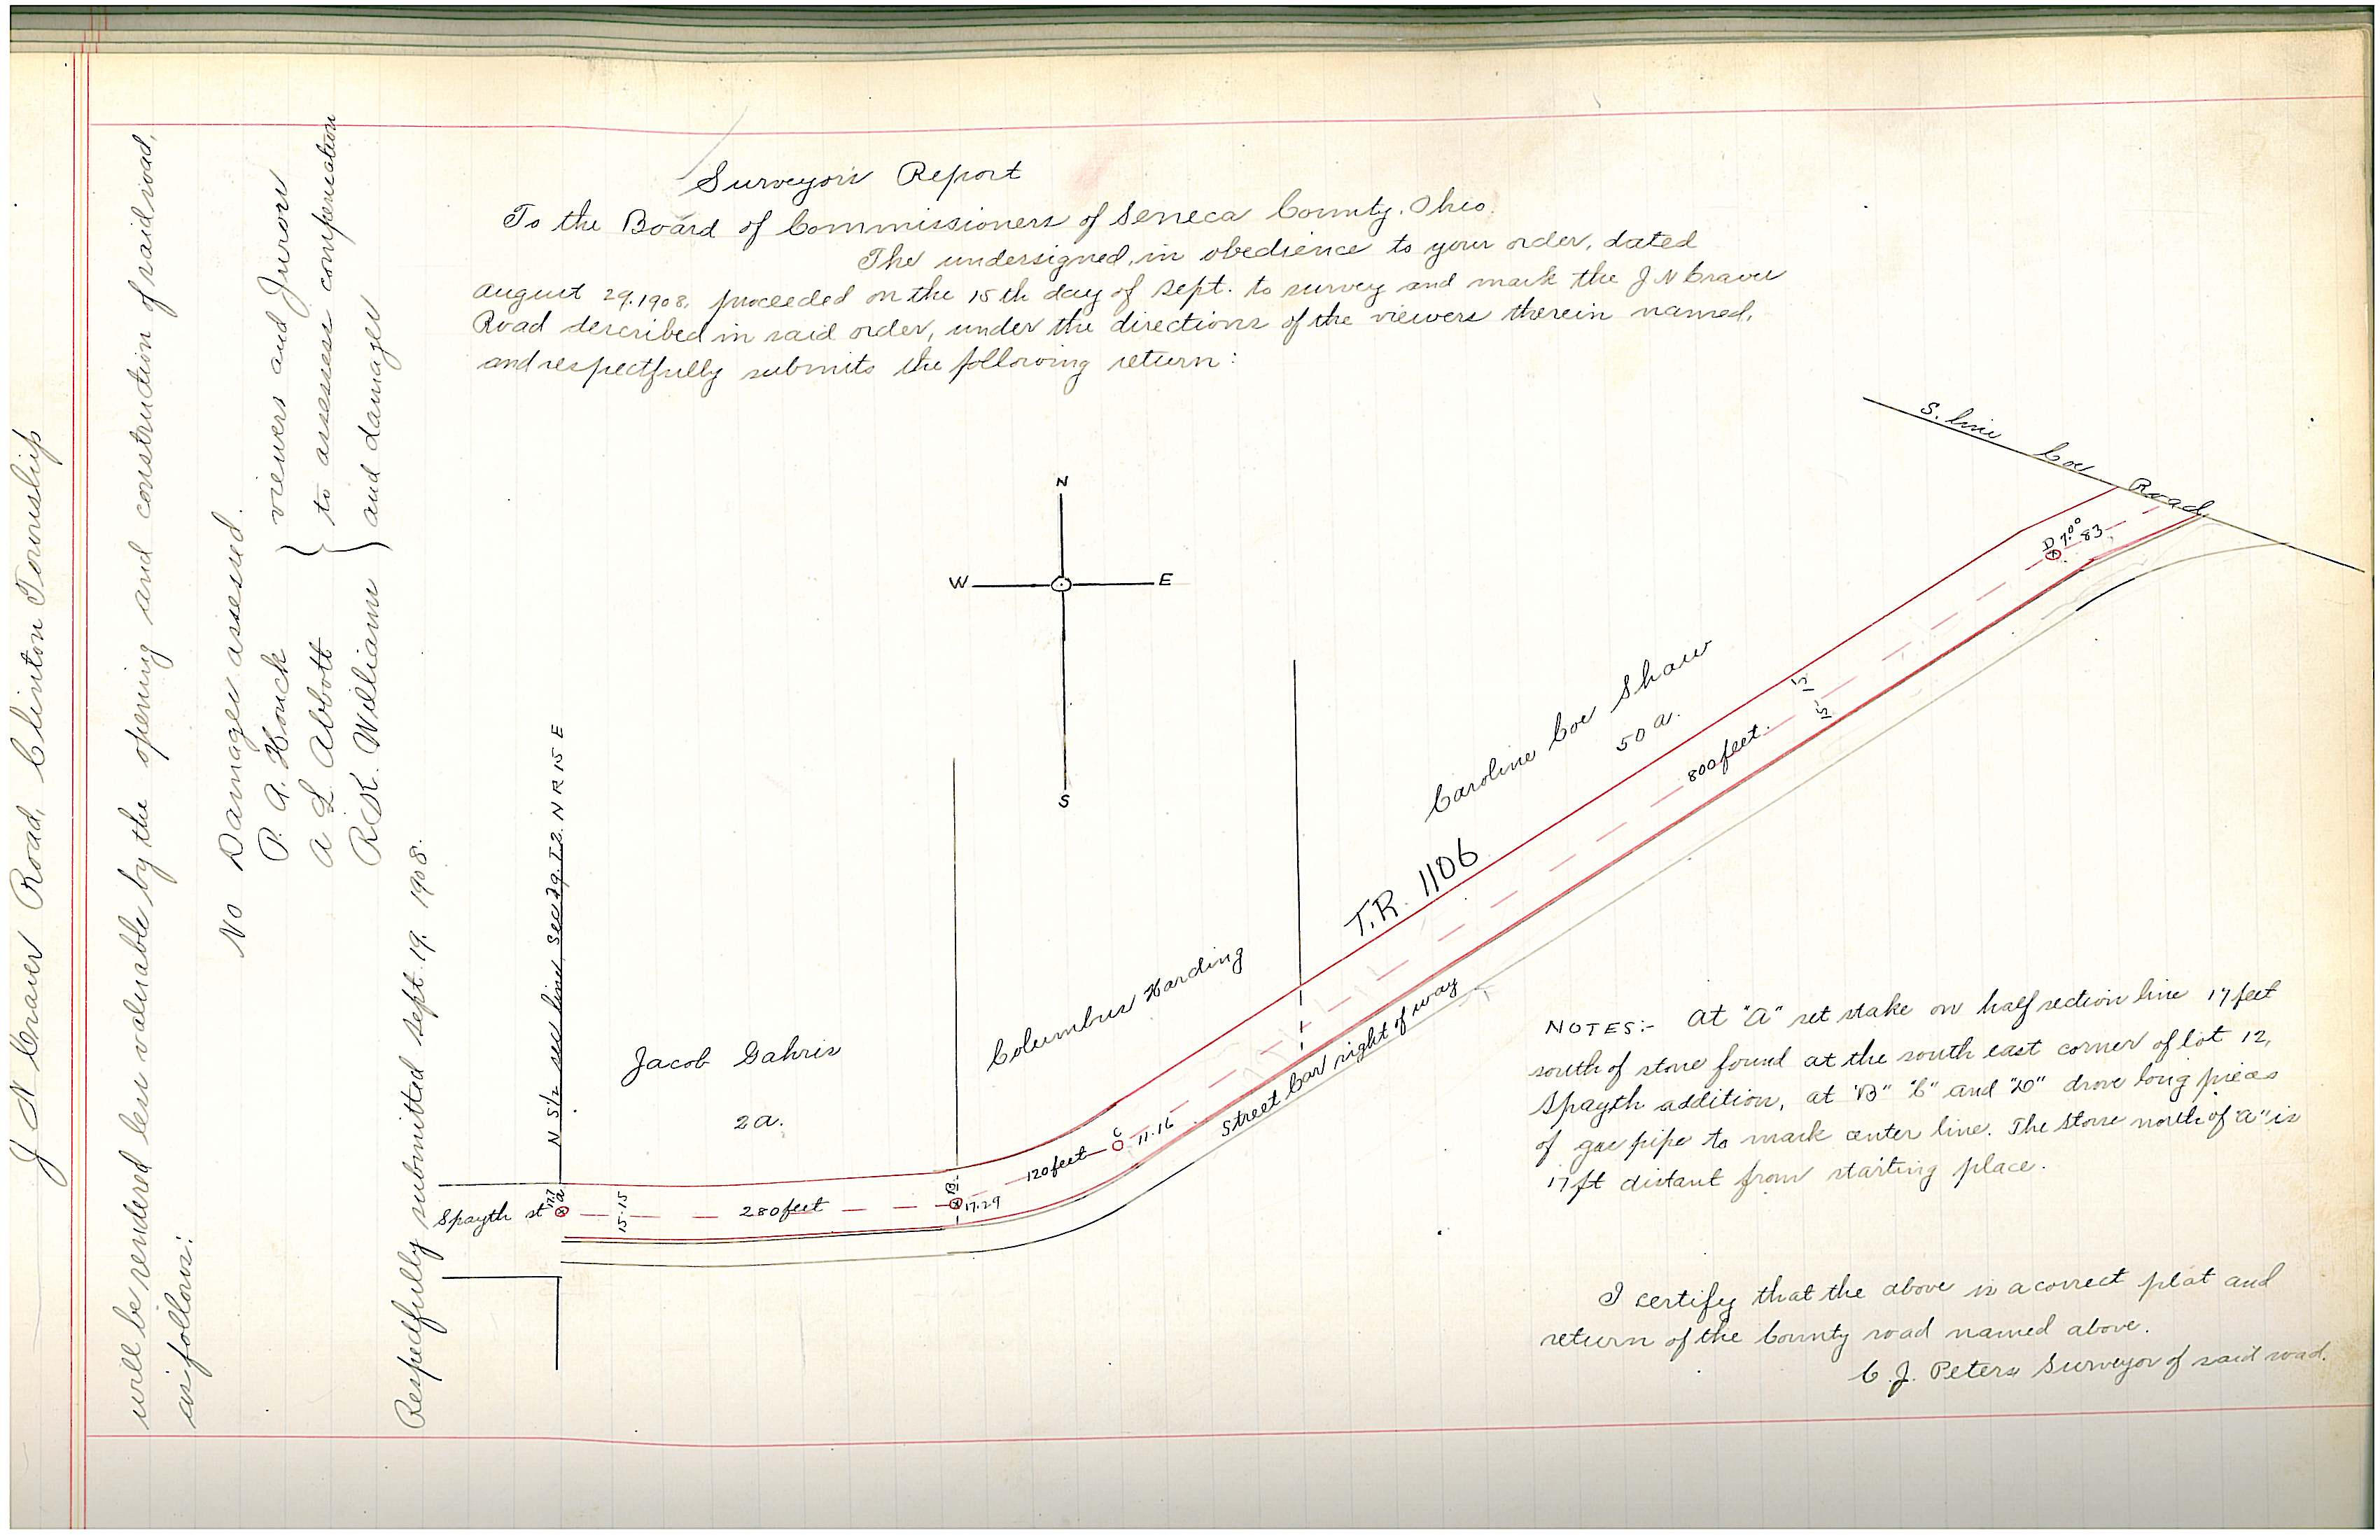 J N Craver Road, Clinton Township
will be rendered less valuable by the opening and construction of said road,
as follows:
No Damages assessed.
P. A. Houck } viewers and Jurors
A L. Abbott } to assessess compensation
R K. Williams } and damages
Respectfully submitted Sept. 19. 1908.
Surveyors Report
To the Board of Commissioners of Seneca County. Ohio.
The undersigned, in obedience to your order, dated
August 29. 1908, proceeded on the 15th day of Sept. to survey and mark the J N Craver
Road described in said order, under the directions of the viewers therein named,
and respectfully submits the following return:
N
W E
S
S. line Coe Road
D
7.00
83
15
15
Caroline Coe Shaw
50 a.
800 feet.
T.R. 1106
N S 1/2 sec line Sec 29. T.2. N R 15 E
Columbus Harding
Jacob Gahris
2 a.
Street Car right of way
C
11.16
120 feet
B
17.29
280 feet
15.15
Spayth st
a
NOTES:- At "A" set stake on half section line 17 feet
south of stone found at the south east corner of lot 12,
Spayth addition, at "B" "C" and "D" drove long pieces
of gas pipe to mark center line. The Stone north of "a" is
17 ft distant from starting place.
I certify that the above is a correct plat and
return of the County road named above.
C. J. Peters Surveyor of said road.